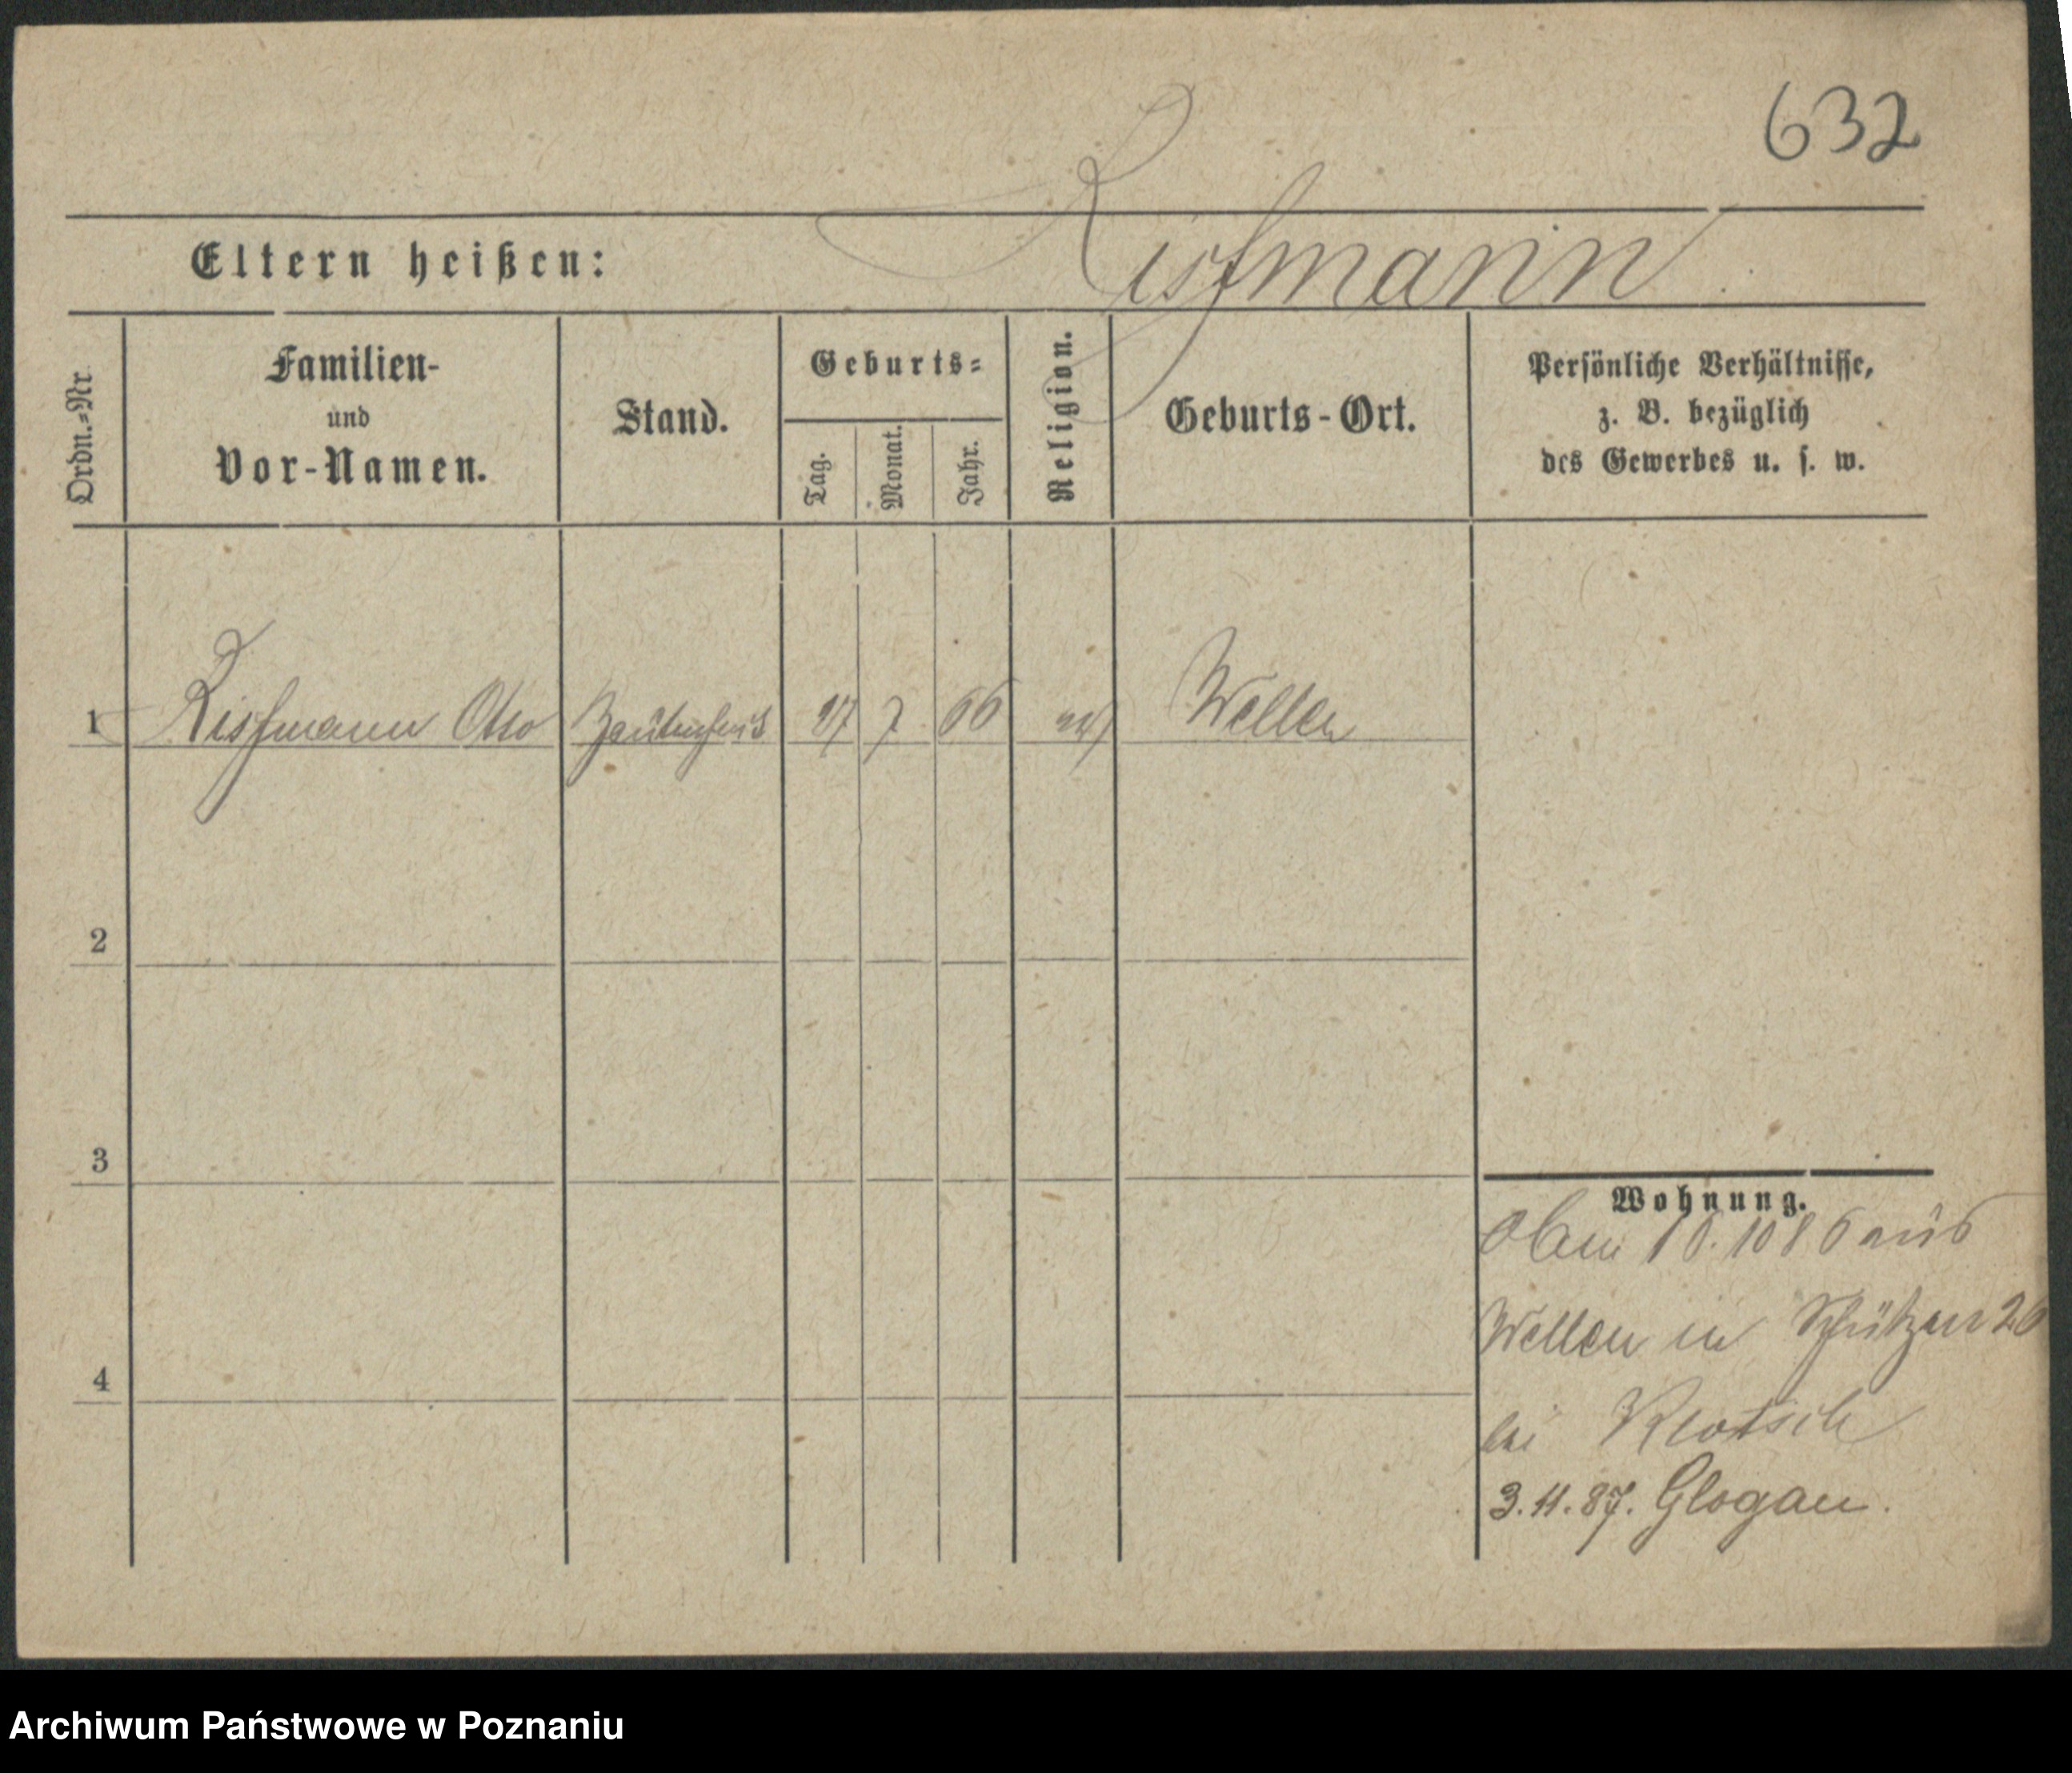 632
Rissmann
Eltern heißen:
Ordn.=Nr.
Familien-
und
Vor-Namen.
Stand.
Geburts=
Tag.
Monat.
Jahr.
Religion.
Geburts-Ort.
Persönliche Verhältnisse,
z. B. bezüglich
des Gewerbes u. s. w.
1 Rissmann Otto 17 7 66 Wellen
2
3
4
Wohnung.
10.86 aus
Wellen in Schützen 26
bei
3.11.87. Glogau.
Archiwum Państwowe w Poznaniu